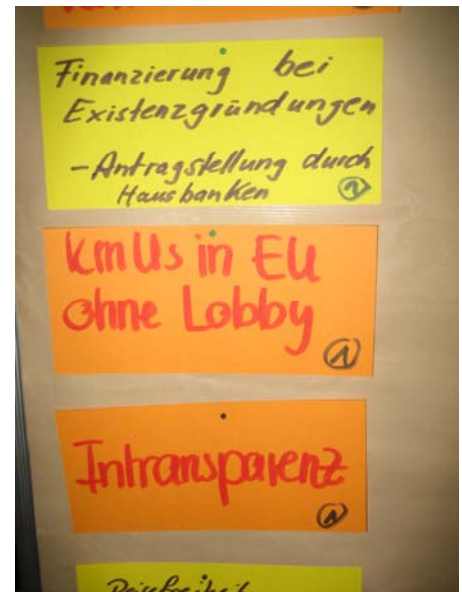 Finanzierung bei
Existenzgründungen
- Antragstellung durch
Hausbanken 2
KmUs in EU
ohne Lobby
1
Intransparenz
1